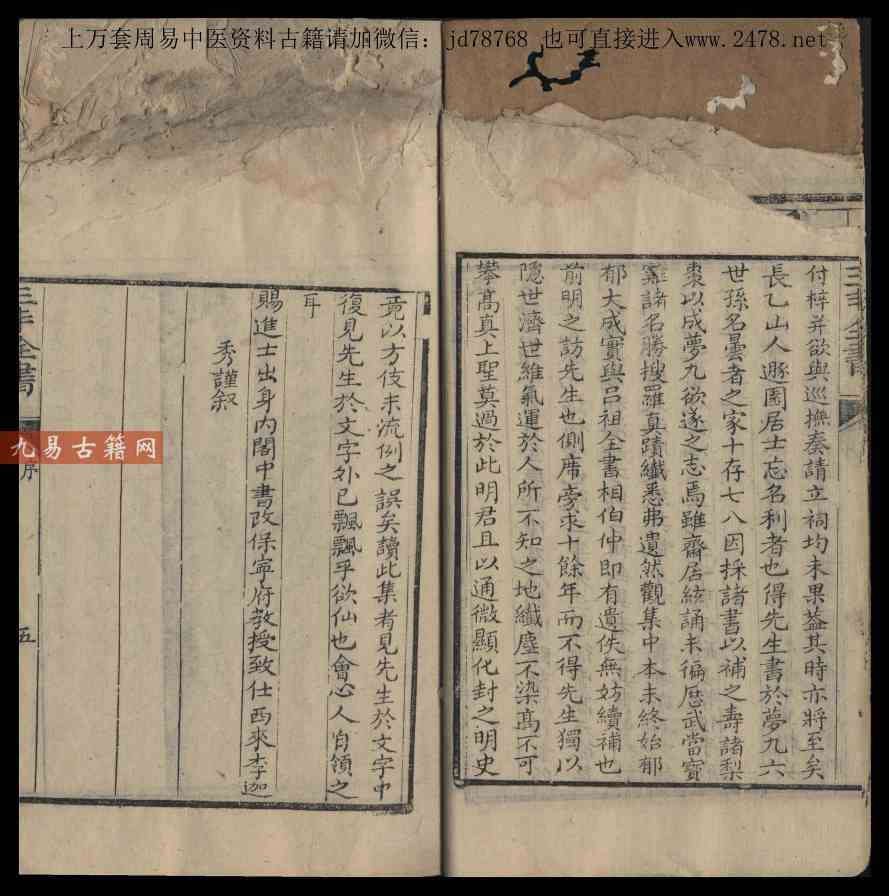 上万套周易中医资料古籍请加微信：jd78768 也可直接进入www.2478.net
三丰全書
付梓并欲與巡撫奏請立祠均未果葢其時亦將至矣
長乙山人遯園居士忘名利者也得先生書於夢九六
世孫名曇者之家十存七八因採諸書以補之壽諸梨
棗以成夢九欲遂之志焉雖齋居絃誦未徧歷武當寶
雞諸名勝搜羅真蹟纖悉弗遺然觀集中本末終始郁
郁大成實與呂祖全書相伯仲即有遺佚無妨續補也
前明之訪先生也側席旁求十餘年而不得先生獨以
隱世濟世維氣運於人所不知之地纖塵不染高不可
攀高真上聖莫過於此明君且以通微顯化封之明史
竟以方伎末流例之誤矣讀此集者見先生於文字中
復見先生於文字外已飄飄乎欲仙也會心人自領之
耳
賜進士出身内閣中書改保寧府教授致仕西來李迦
秀謹叙
三丰全書
序
五
九易古籍网